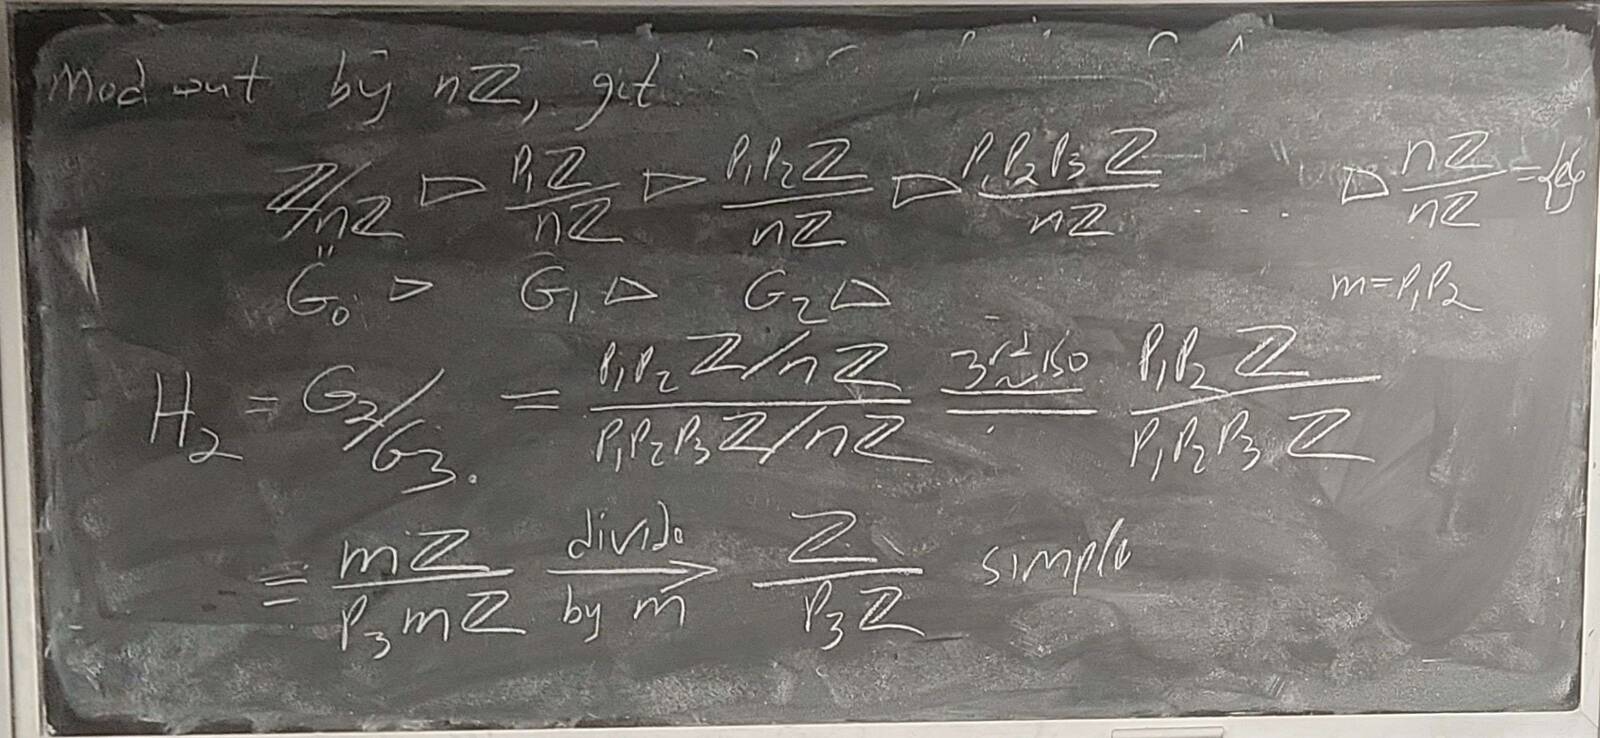 Mod out by nℤ, get
ℤ/nℤ ▷ P₁ℤ/nℤ ▷ P₁P₂ℤ/nℤ ▷ P₁P₂P₃ℤ/nℤ .... ▷ nℤ/nℤ = {e}
"
G₀ ▷ G₁ ▷ G₂ ▷ m=P₁P₂
H₂ = G₂/G₃. = (P₁P₂ℤ/nℤ)/(P₁P₂P₃ℤ/nℤ) 3rd iso ≅ P₁P₂ℤ/P₁P₂P₃ℤ
= mℤ/P₃mℤ divide by m → ℤ/P₃ℤ simple